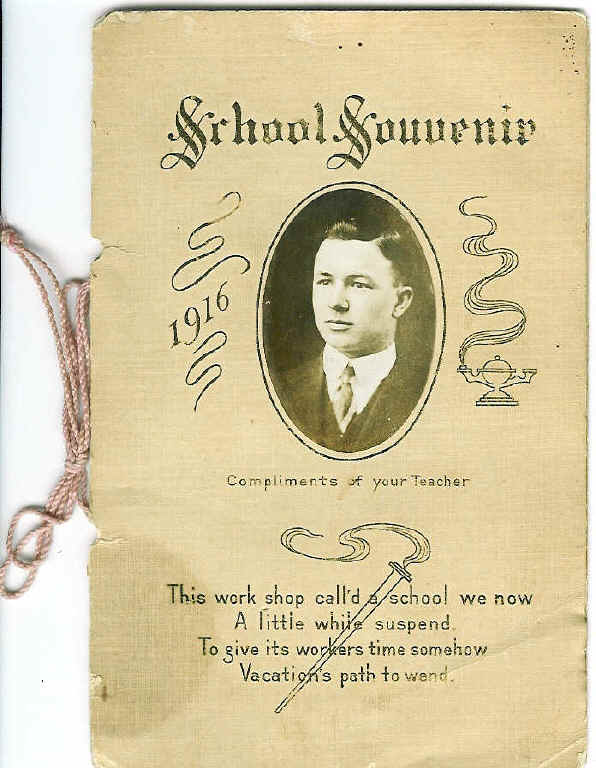 School Souvenir
1916
Compliments of your Teacher
This work shop call'd a school we now
A little while suspend.
To give its workers time somehow
Vacation's path to wend.